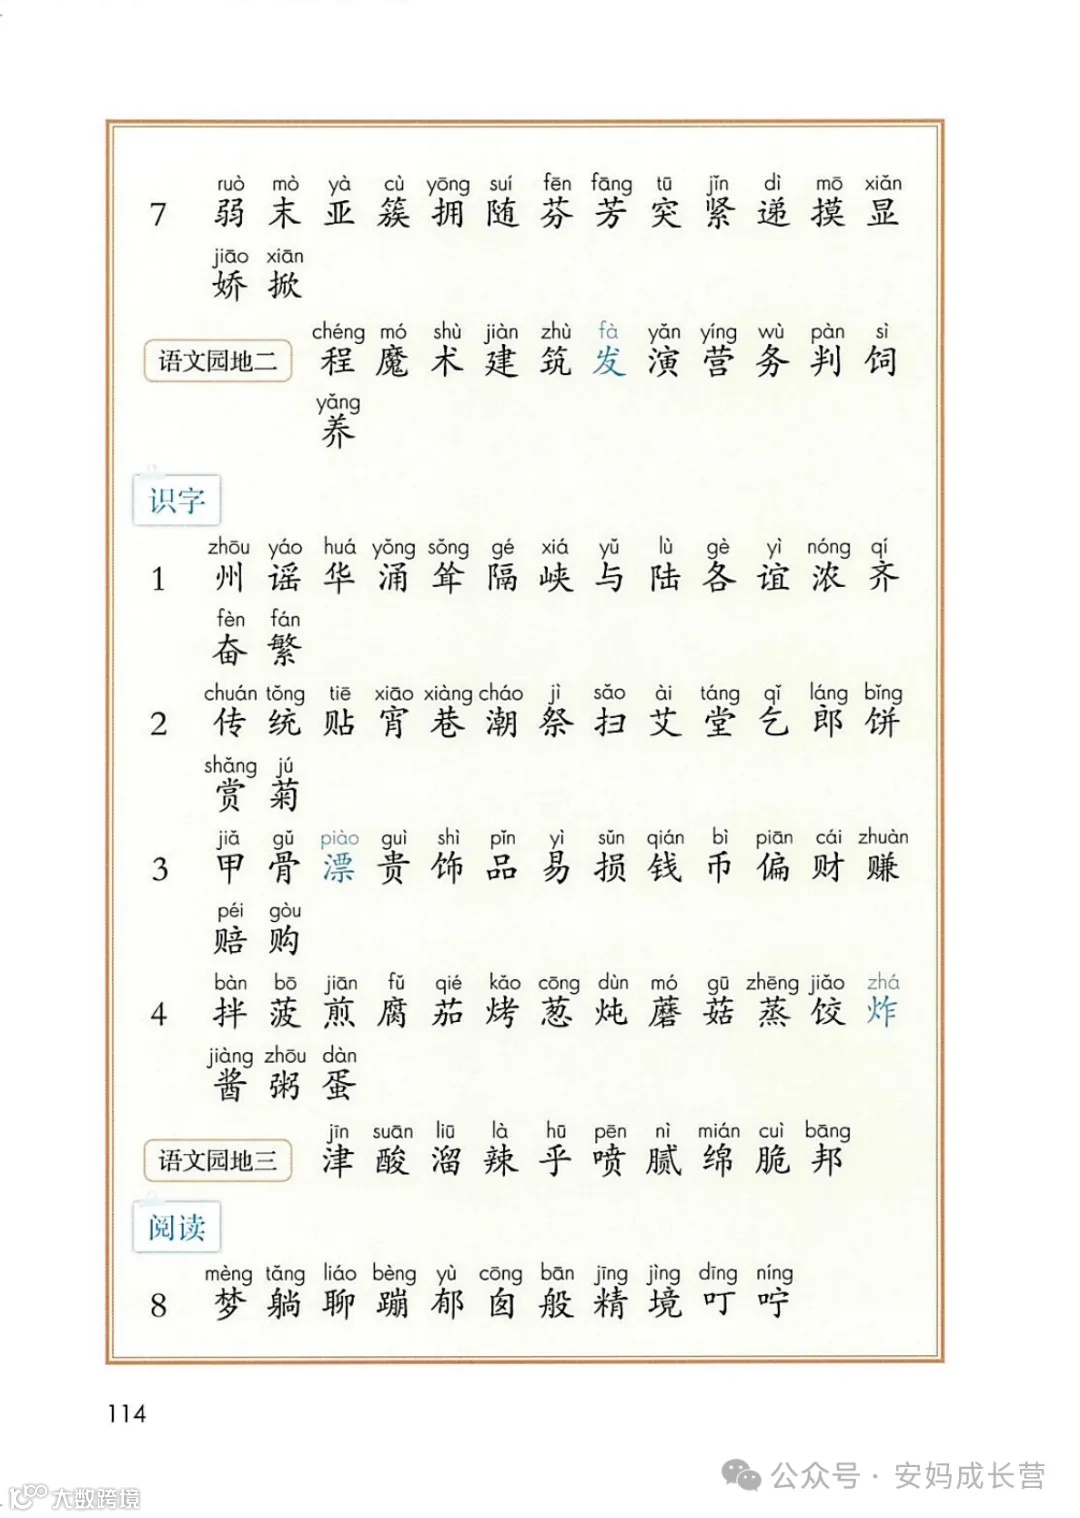 ruò mò yà cù yōng suí fēn fāng tū jǐn dì mō xiǎn
7 弱 末 亚 簇 拥 随 芬 芳 突 紧 递 摸 显
jiāo xiān
娇 掀
chéng mó shù jiàn zhù fà yǎn yíng wù pàn sì
语文园地二 程 魔 术 建 筑 发 演 营 务 判 饲
yǎng
养
识字
zhōu yáo huá yǒng sǒng gé xiá yǔ lù gè yì nóng qí
1 州 谣 华 涌 耸 隔 峡 与 陆 各 谊 浓 齐
fèn fán
奋 繁
chuán tǒng tiē xiāo xiàng cháo jì sǎo ài táng qǐ láng bǐng
2 传 统 贴 宵 巷 潮 祭 扫 艾 堂 乞 郎 饼
shǎng jú
赏 菊
jiǎ gǔ piào guì shì pǐn yì sǔn qián bì piān cái zhuàn
3 甲 骨 漂 贵 饰 品 易 损 钱 币 偏 财 赚
péi gòu
赔 购
bàn bō jiān fǔ qié kǎo cōng dùn mó gū zhēng jiǎo zhá
4 拌 菠 煎 腐 茄 烤 葱 炖 蘑 菇 蒸 饺 炸
jiàng zhōu dàn
酱 粥 蛋
jīn suān liū là hū pēn nì mián cuì bāng
语文园地三 津 酸 溜 辣 乎 喷 腻 绵 脆 邦
阅读
mèng tǎng liáo bèng yù cōng bān jīng jìng dīng níng
8 梦 躺 聊 蹦 郁 囱 般 精 境 叮 咛
114
公众号·安妈成长营
大数跨境